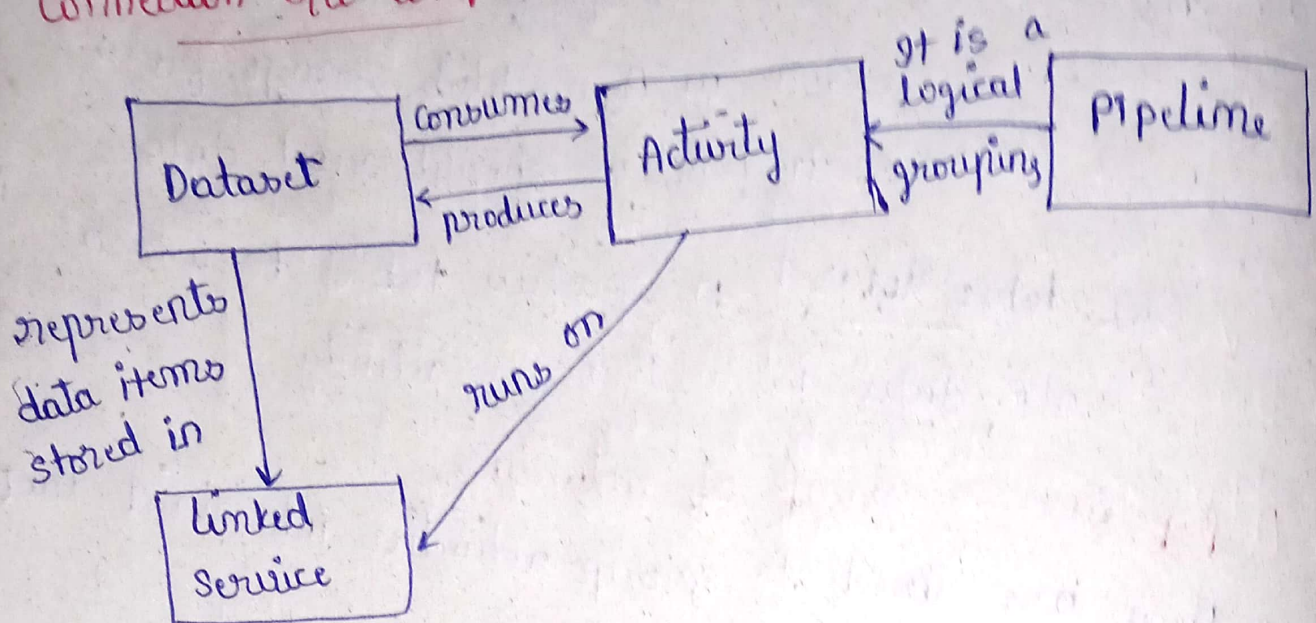 Connection
Dataset
consumes
produces
Activity
It is a
logical
grouping
Pipeline
represents
data items
stored in
runs on
Linked
Service